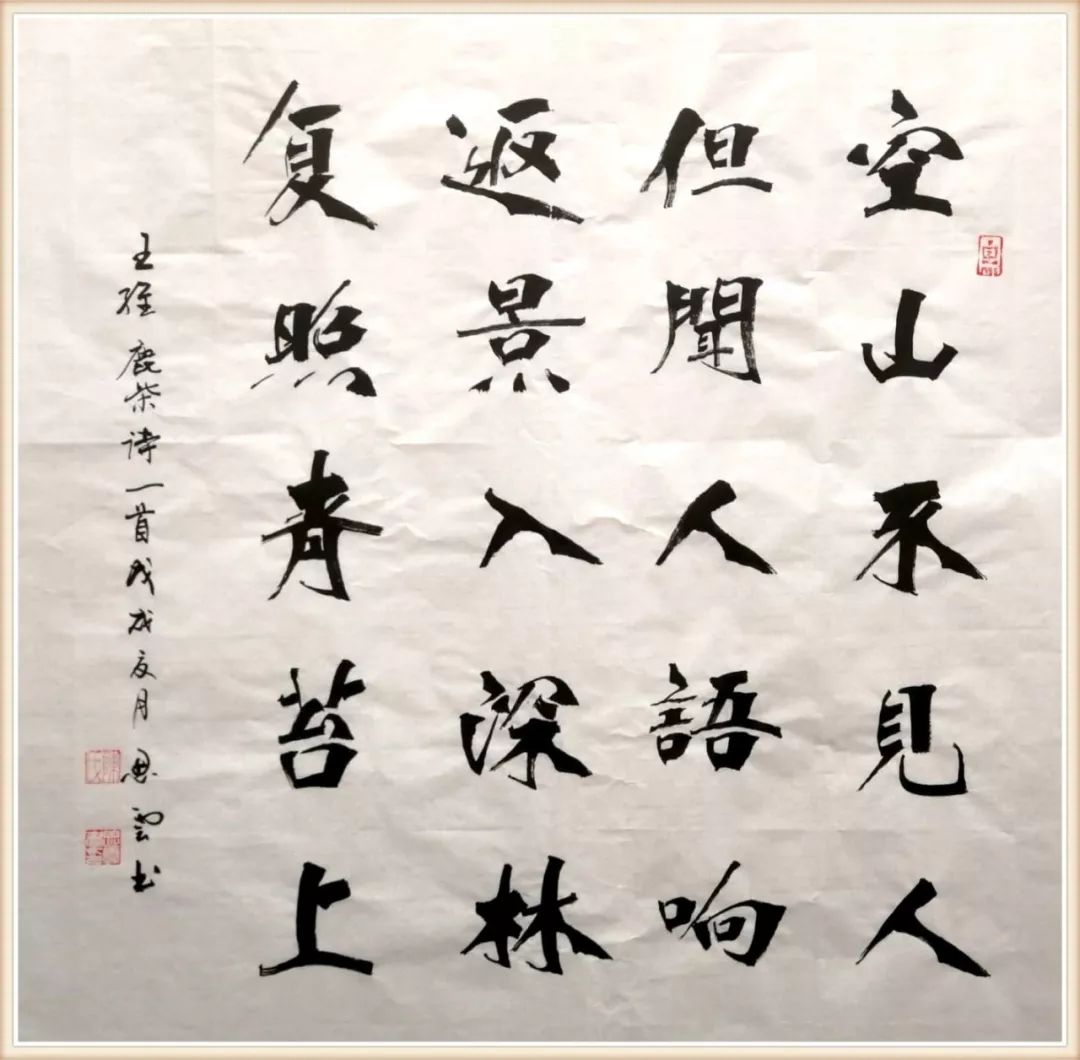 空山不見人
但聞人語响
返景入深林
复照青苔上
王維鹿柴诗一首戊戌夏月思雲书